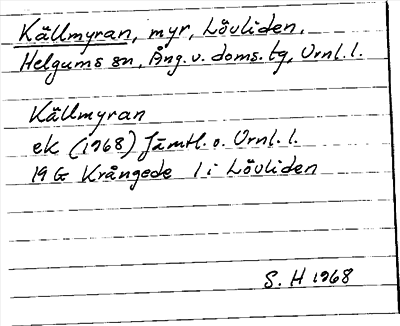 Källmyran, myr, Lövliden.
Helgums sn, Ång. v. doms. tg, Vrnl. l.
Källmyran
ek (1968) Jämtl. o. Vrnl. l.
19 G Krångede 1 i Lövliden
S. H 1968